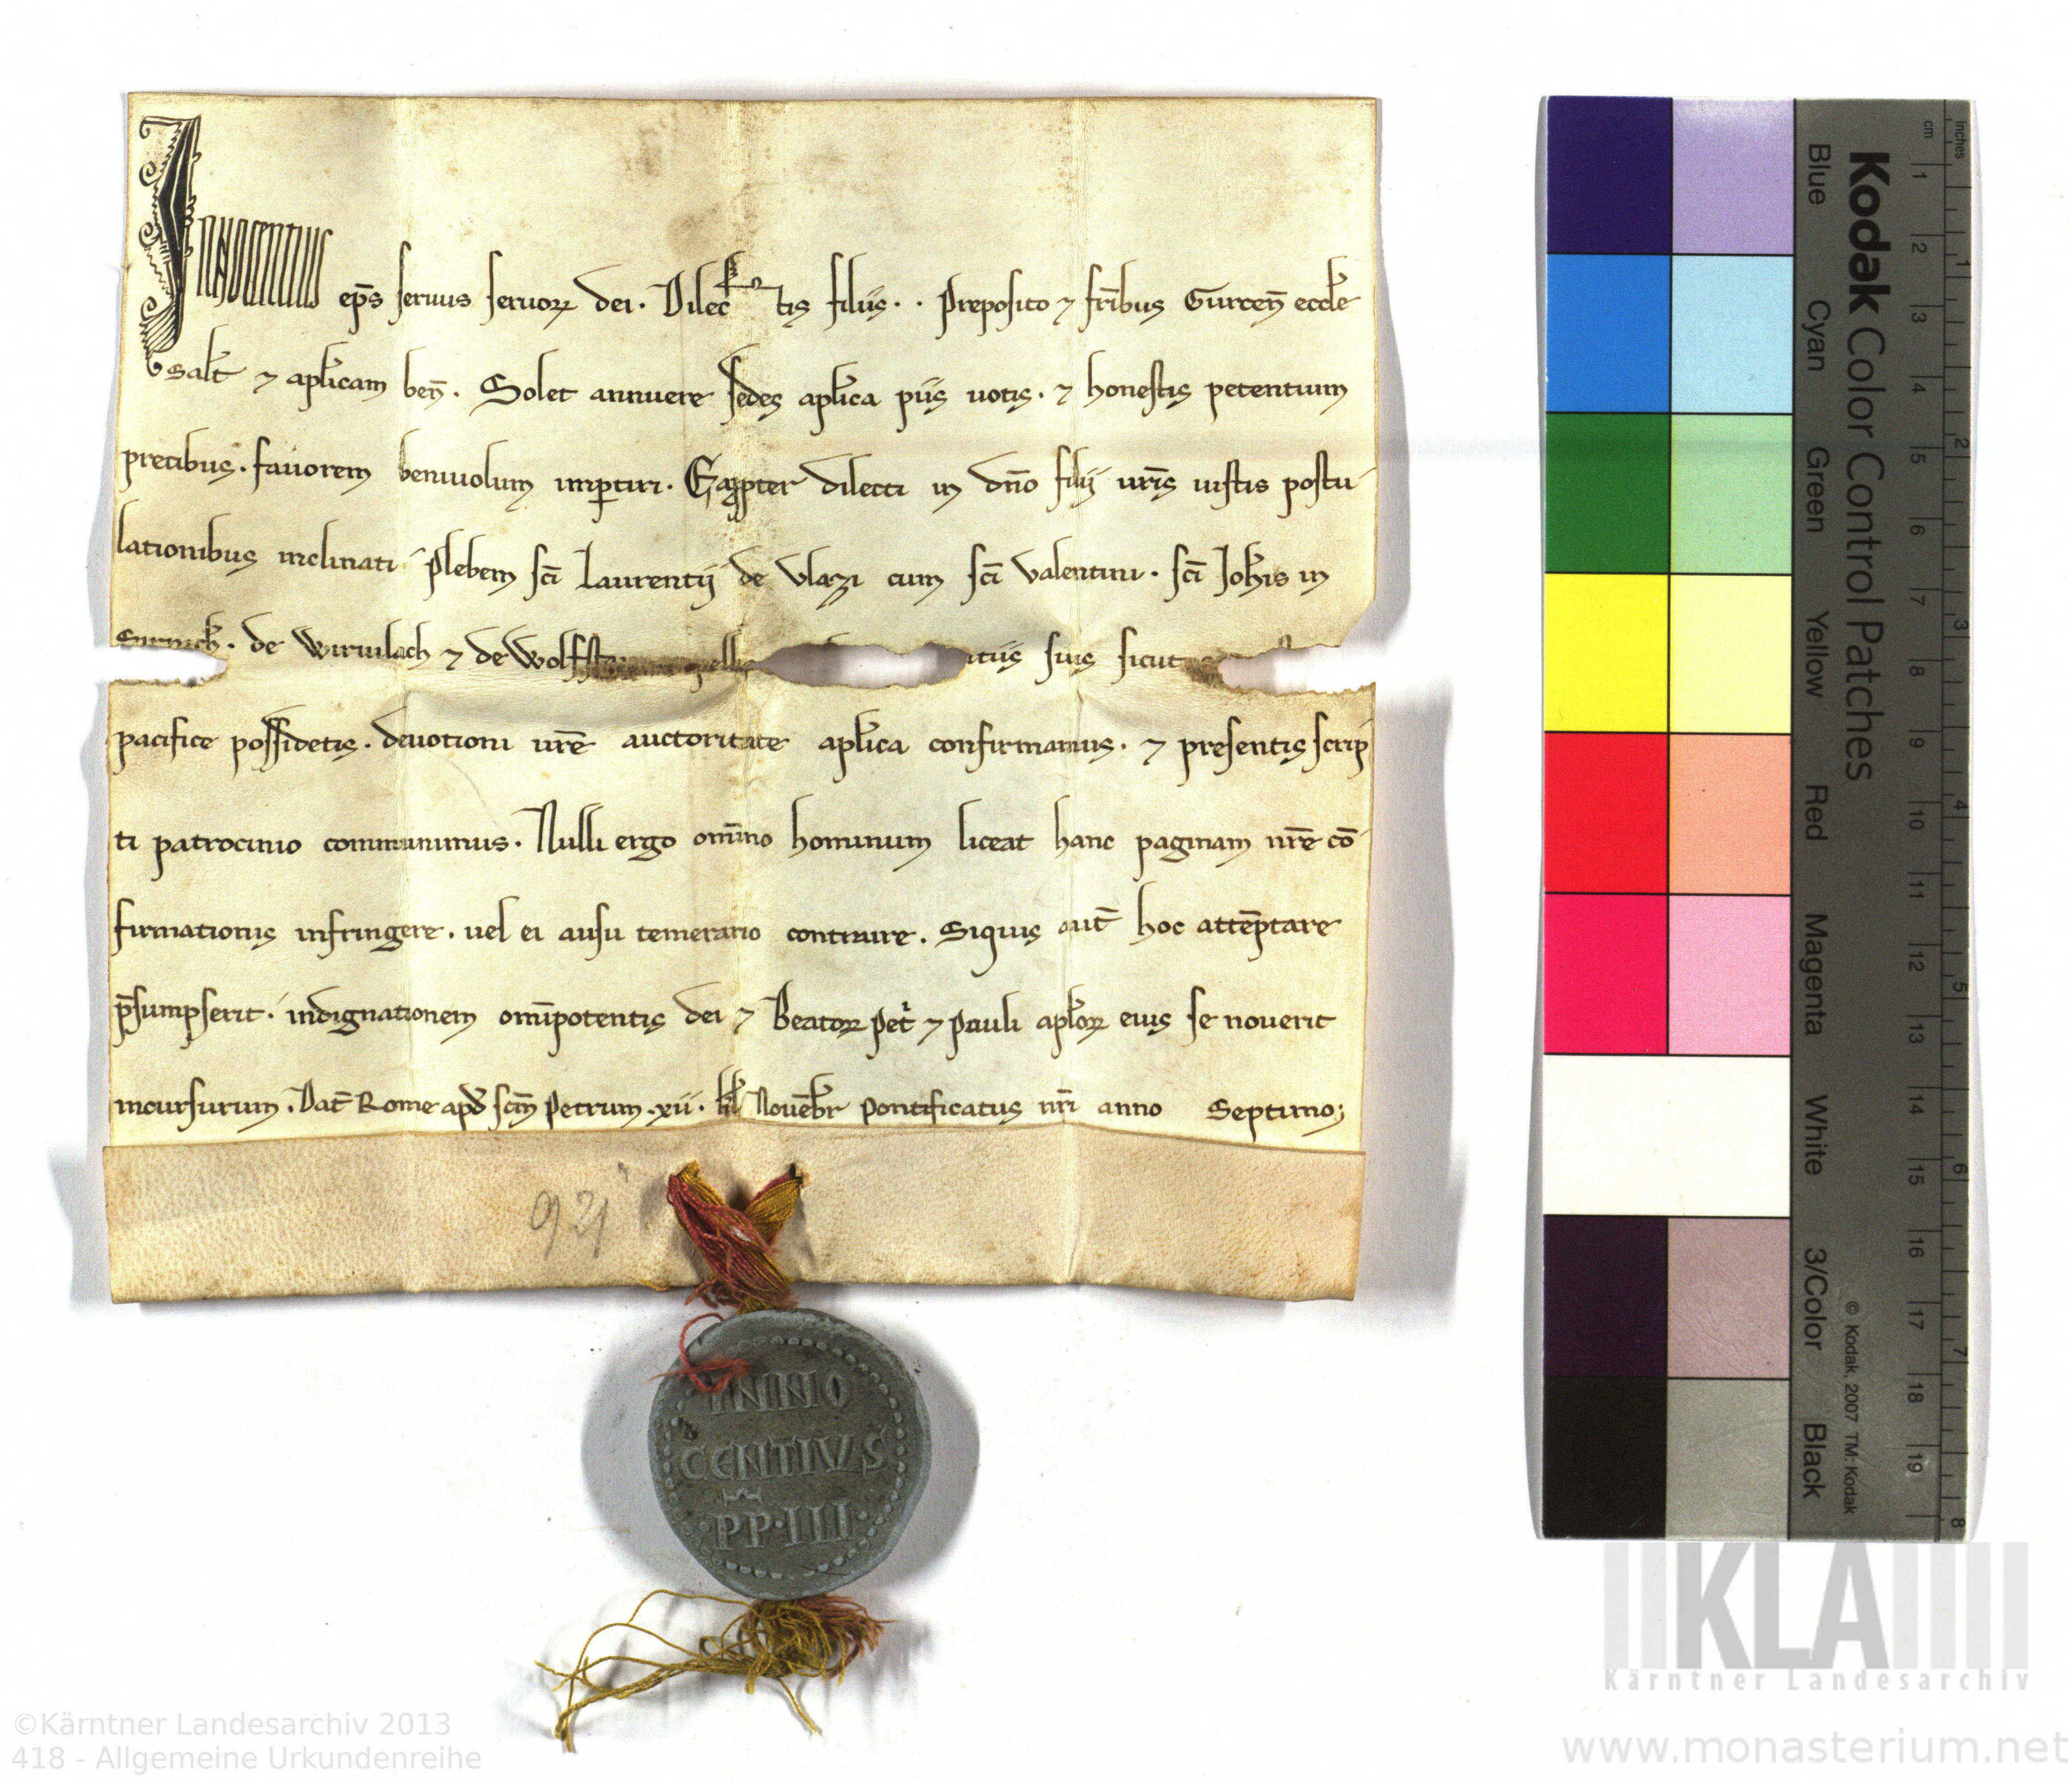 Innocentius ep̄s seruus seruoꝝ dei. Dilec tis filiis. . Preposito ⁊ fr̄ibus Gurcen̄ eccle
salt̄ ⁊ apl̄icam ben̄. Solet annuere sedes apl̄ica piis uotis. ⁊ honestis petentium
precibus. fauorem beniuolum imꝑtiri. Eaꝓpter dilecti in dn̄o filij ur̄is iustis postu
lationibus inclinati Plebem sc̄i Laurentij de Vlazi cum sc̄i Valentini. sc̄i Joh̄is in
de Wiruilach ⁊ de Wolfst sius sicut
pacifice possidetis. deuotioni ur̄e auctoritate apl̄ica confirmamus. ⁊ presentis scrip
ti patrocinio communimus. Nulli ergo om̄ino hominum liceat hanc paginam nr̄e cō
firmationis infringere. uel ei ausu temerario contraire. Siquis aut̄ hoc attēptare
p̄sumpserit. indignationem om̄ipotentis dei ⁊ Beatoꝝ Pet̉ ⁊ Pauli apl̄oꝝ eius se nouerit
incursurum. Dat̄ Rome apđ sc̄m Petrum .xii. kl̄ Nouēbr̄ Pontificatus nr̄i anno Septimo;
921
INNO
CENTIVS
PP·III·
Kodak Color Control Patches
Blue Cyan Green Yellow Red Magenta White 3/Color Black
© Kodak, 2007 TM: Kodak
cm 1 2 3 4 5 6 7 8 9 10 11 12 13 14 15 16 17 18 19
inches 1 2 3 4 5 6 7 8
KLA
Kärntner Landesarchiv
©Kärntner Landesarchiv 2013
418 - Allgemeine Urkundenreihe
www.monasterium.net